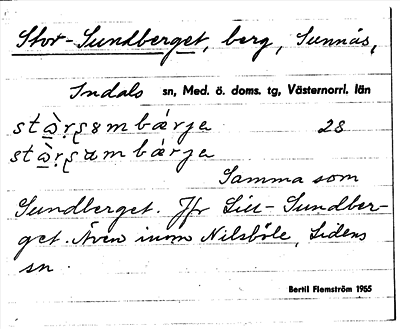 Stor-Sundberget, berg, Sunnås,
Indals sn, Med. ö. doms. tg, Västernorrl. län
28
Samma som
Sundberget. Jfr Lill-Sundber-
get. Även inom Nilsböle, Lidens
sn
Bertil Flemström 1965